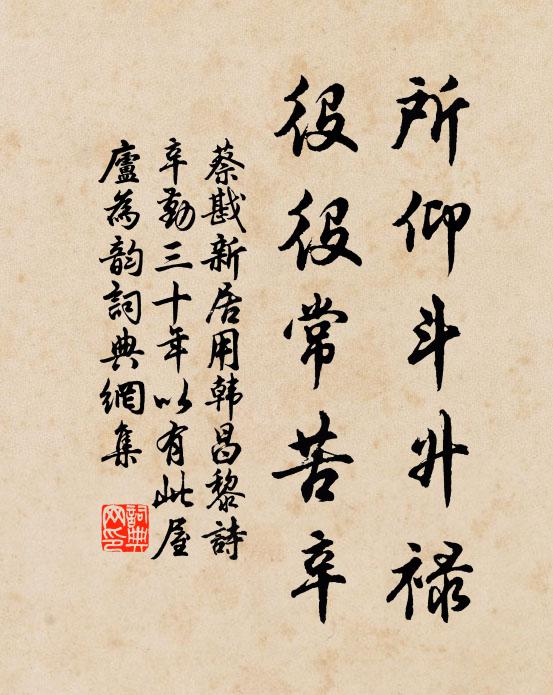 所仰斗升禄
役役常苦辛
蔡戡新居用韩昌黎詩
辛勤三十年以有此屋
廬為韵詞典網集
詞典网印